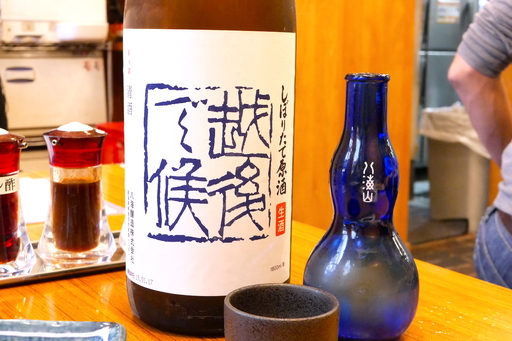 しぼりたて原酒
生酒
越後
で候
清酒
八海醸造株式会社
1800ml
八海山
酢